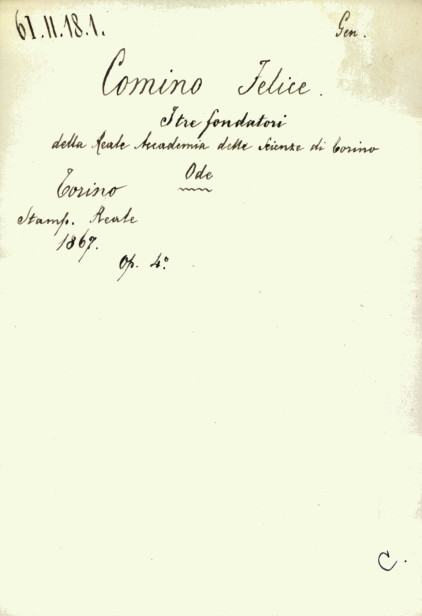 61.II.18.1.
Gen.
Comino Felice.
I tre fondatori
della Reale Accademia delle Scienze di Torino
Ode
Torino
Stamp. Reale
1867.
Op. 4.º
C.